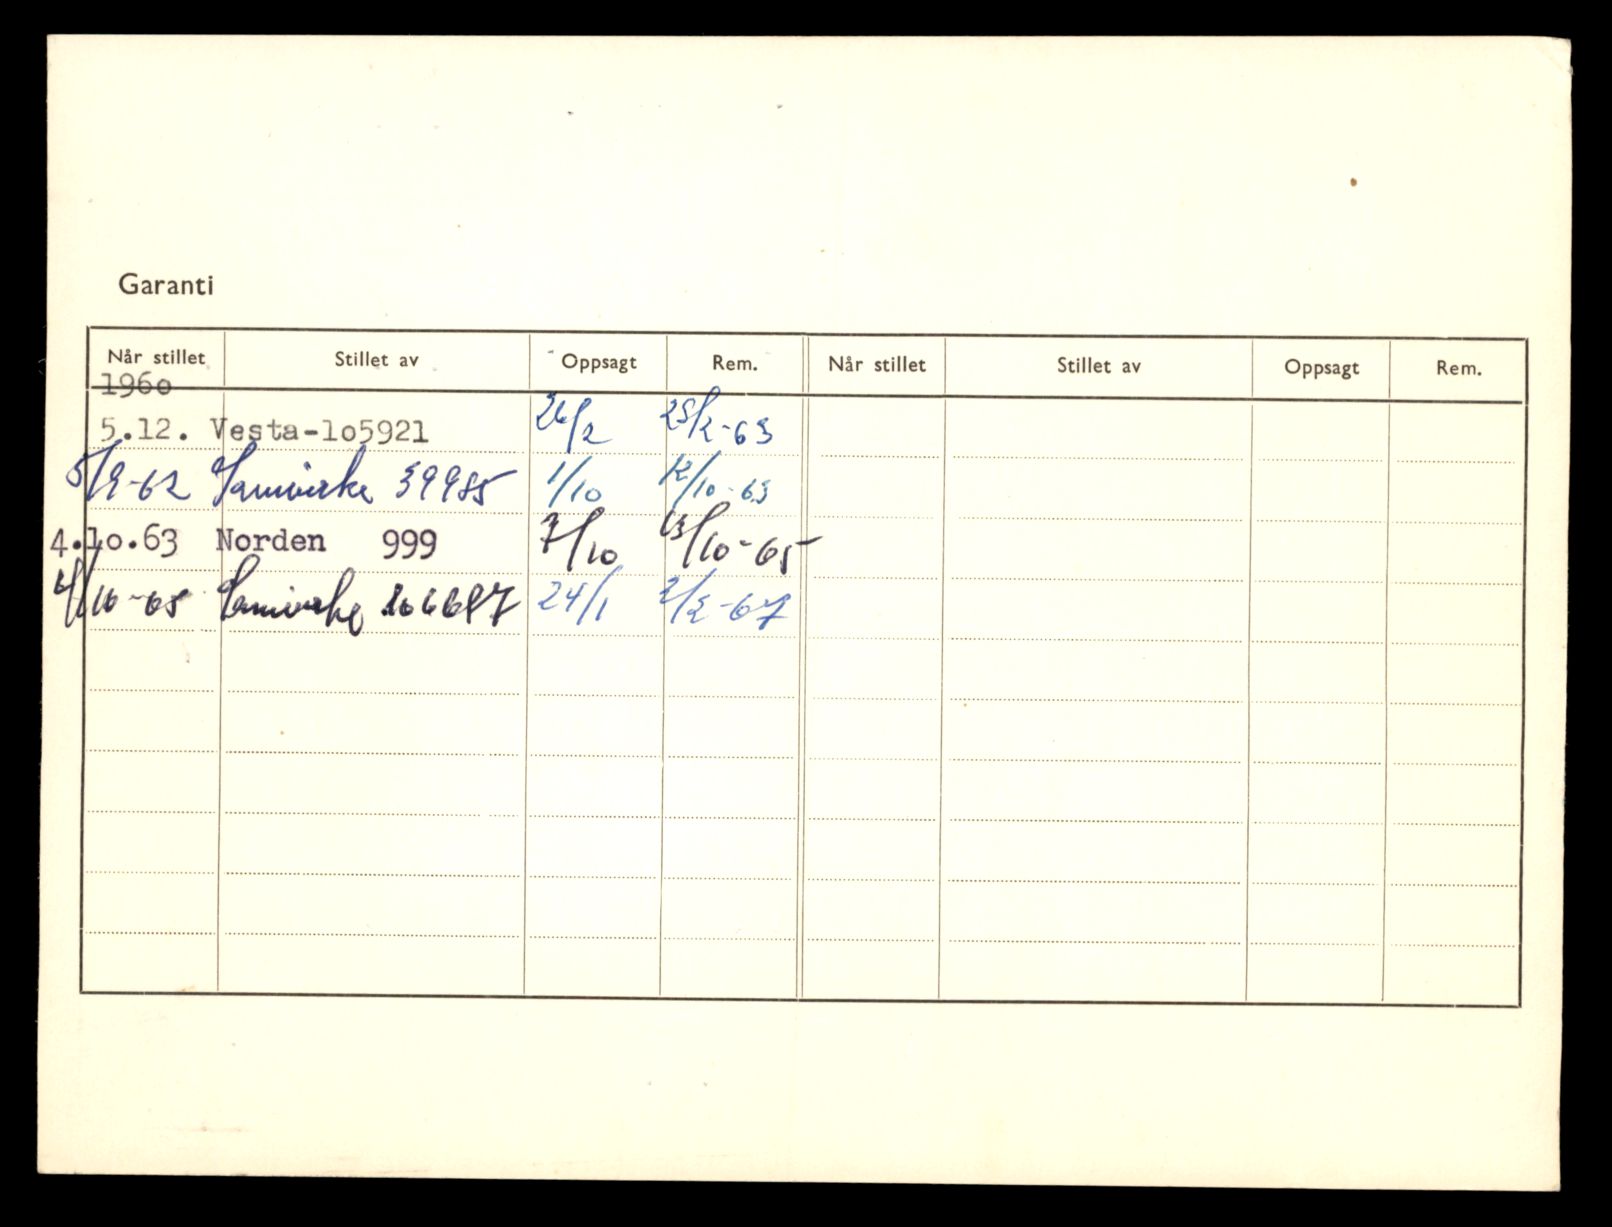 Garanti
Når stillet Stillet av Oppsagt Rem. Når stillet Stillet av Oppsagt Rem.
1960
5.12. Vesta-lo5921 26/2 25/2-63
5/9-62 Samvirke 39985 1/10 12/10-63
4.lo.63 Norden 999 7/10 13/10-65
/10-65 Samvirke 24/1 2/2-67